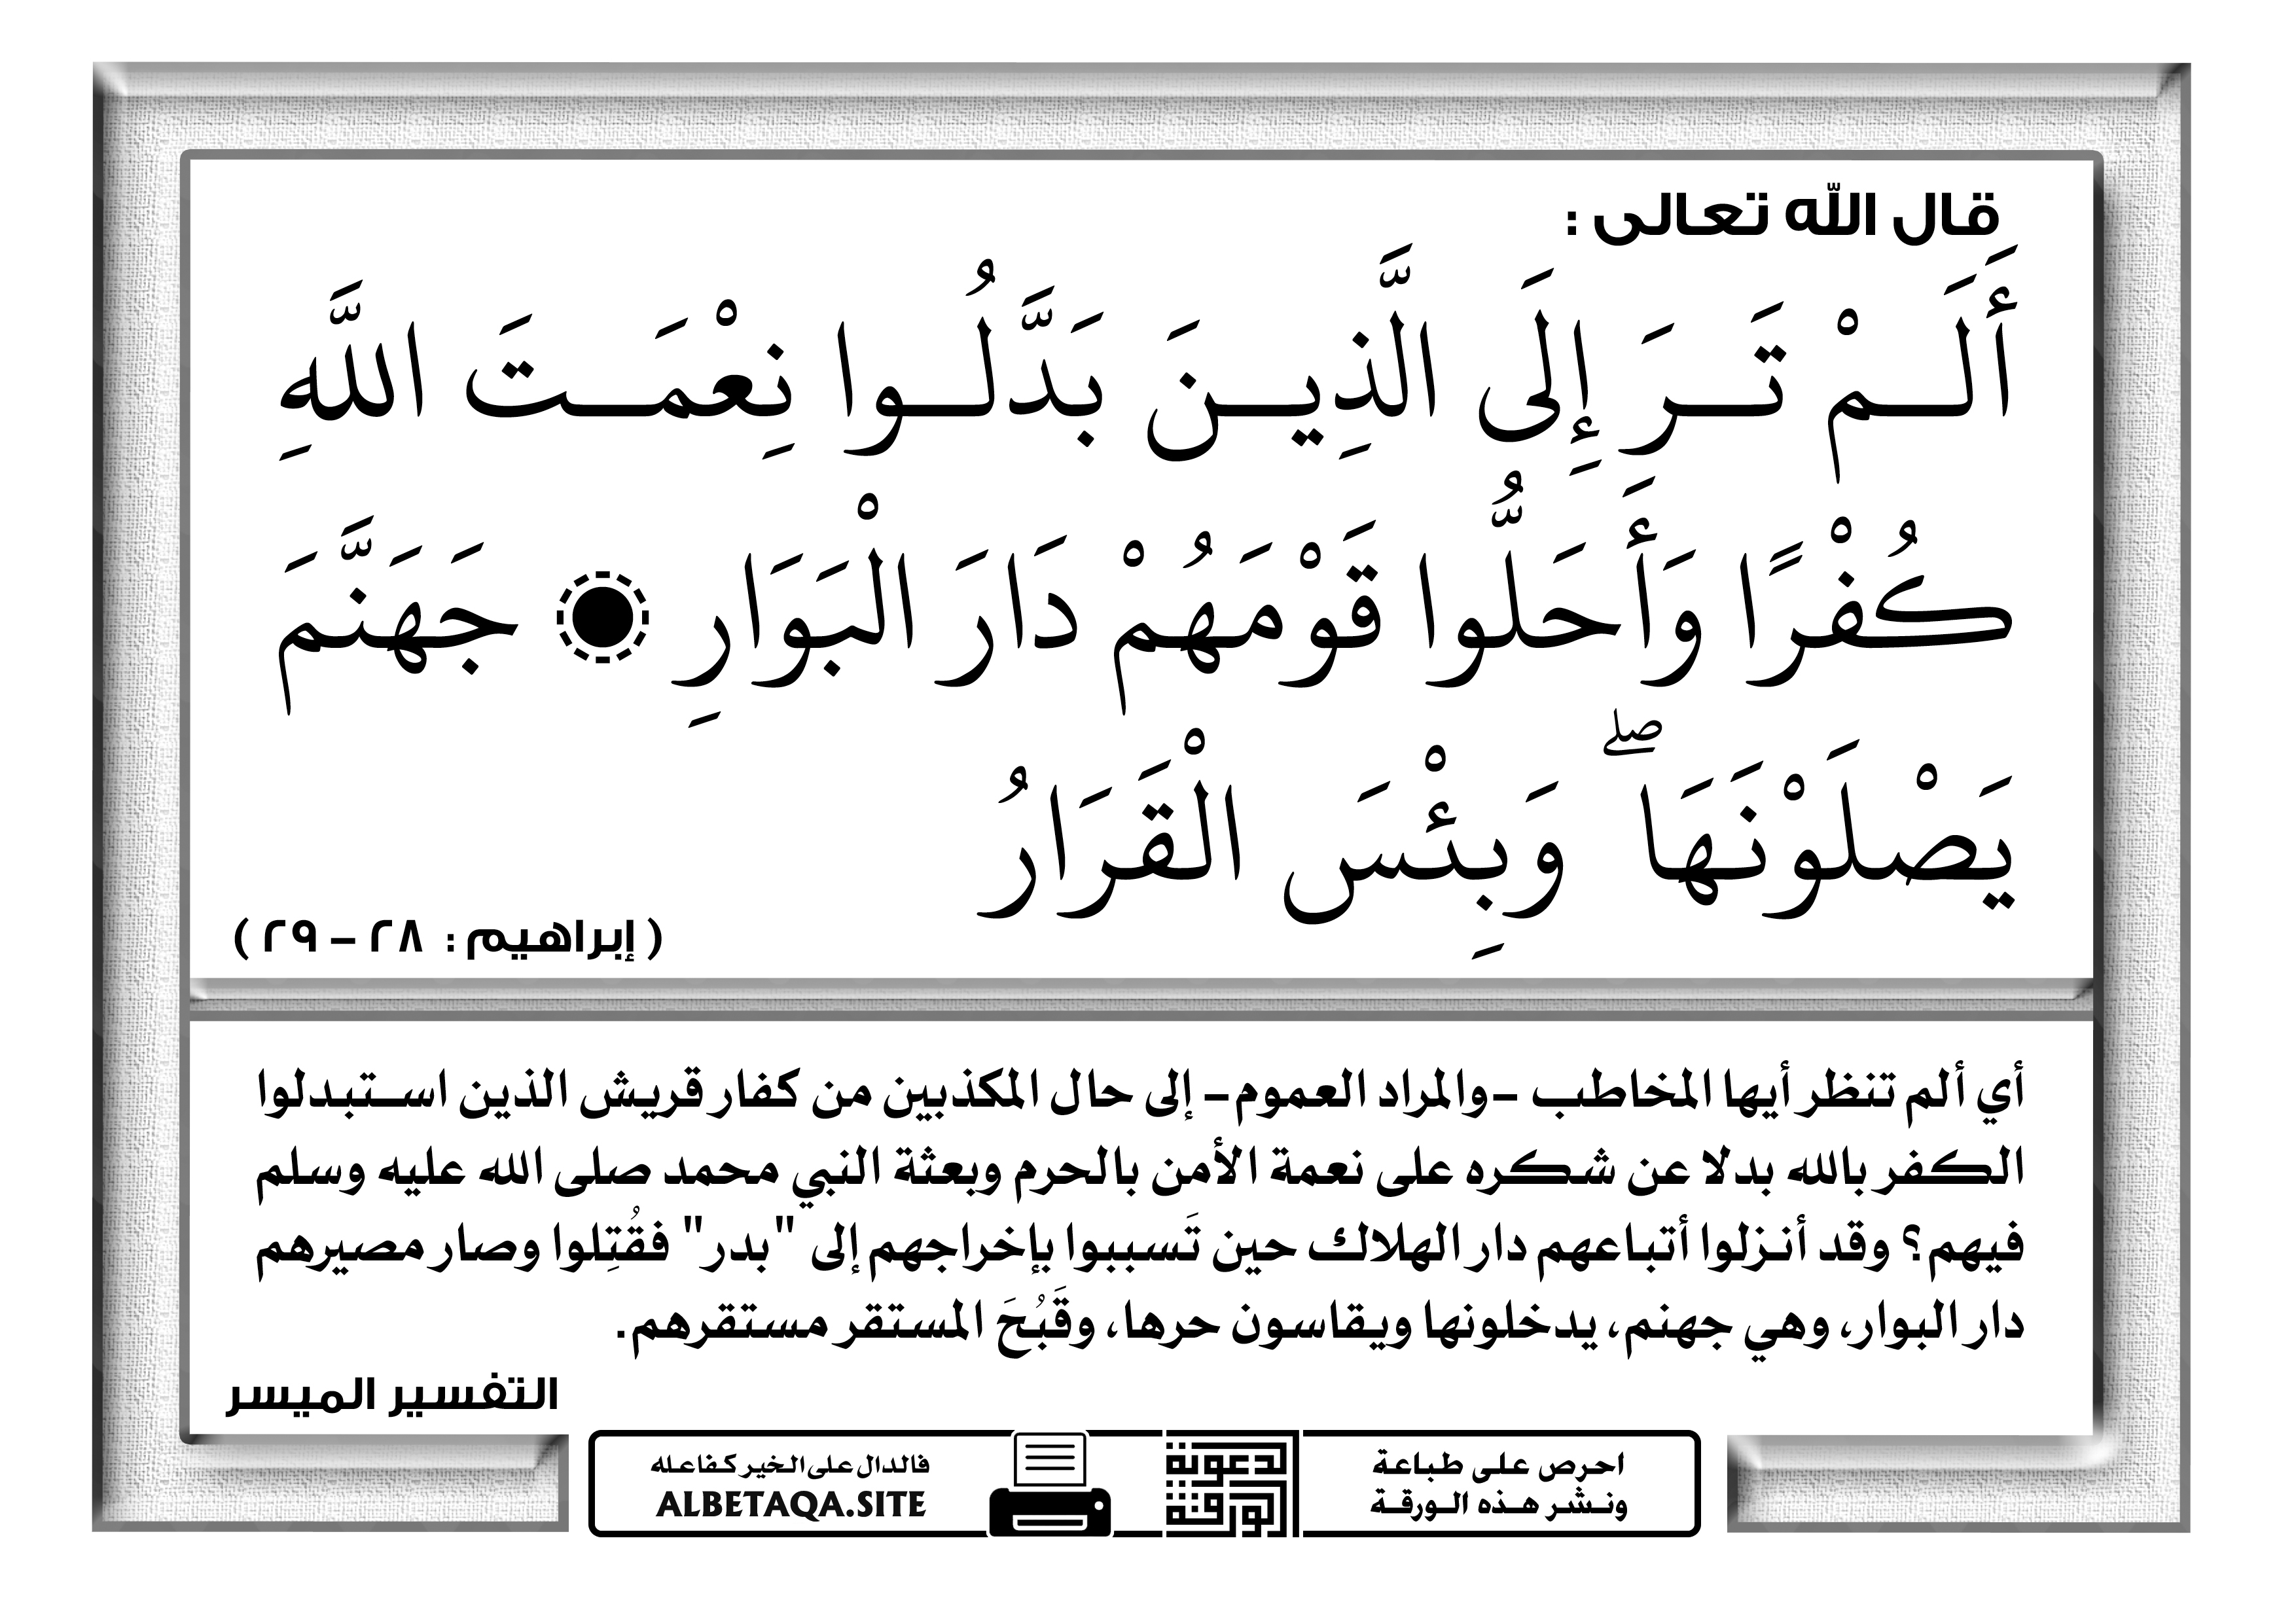 قال الله تعالى :
أَلَمْ تَرَ إِلَى الَّذِينَ بَدَّلُوا نِعْمَتَ اللَّهِ
كُفْرًا وَأَحَلُّوا قَوْمَهُمْ دَارَ الْبَوَارِ ۝ جَهَنَّمَ
يَصْلَوْنَهَا ۖ وَبِئْسَ الْقَرَارُ
( إبراهيم : ٢٨ - ٢٩ )
أي ألم تنظر أيها المخاطب -والمراد العموم- إلى حال المكذبين من كفار قريش الذين استبدلوا
الكفر بالله بدلا عن شكره على نعمة الأمن بالحرم وبعثة النبي محمد صلى الله عليه وسلم
فيهم؟ وقد أنزلوا أتباعهم دار الهلاك حين تَسببوا بإخراجهم إلى "بدر" فقُتِلوا وصار مصيرهم
دار البوار، وهي جهنم، يدخلونها ويقاسون حرها، وقَبُحَ المستقر مستقرهم.
التفسير الميسر
احرص على طباعة
ونشر هذه الورقة
الورقة
الدعوية
فالدال على الخير كفاعله
ALBETAQA.SITE